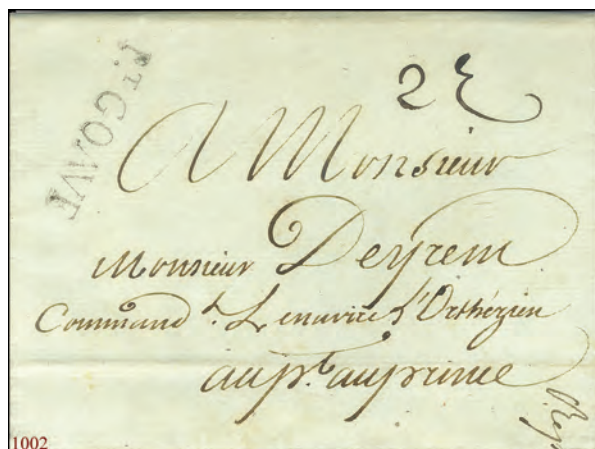 Pt GOAVE
2
A Monsieur
Monsieur Deyrem
Command.t Le navire L'Orthézien
au pt. au prince
1002